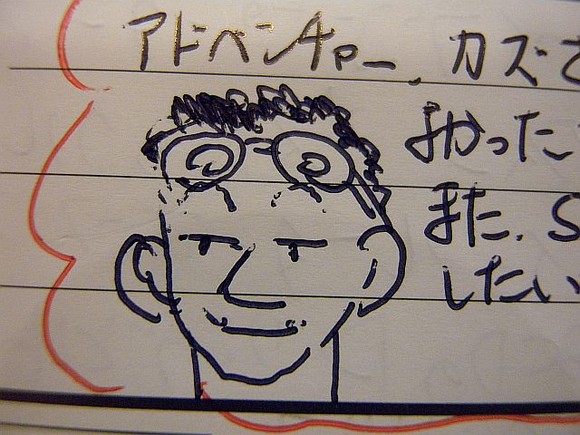 アドベンチャー、カズさ
よかった
また、S
したい